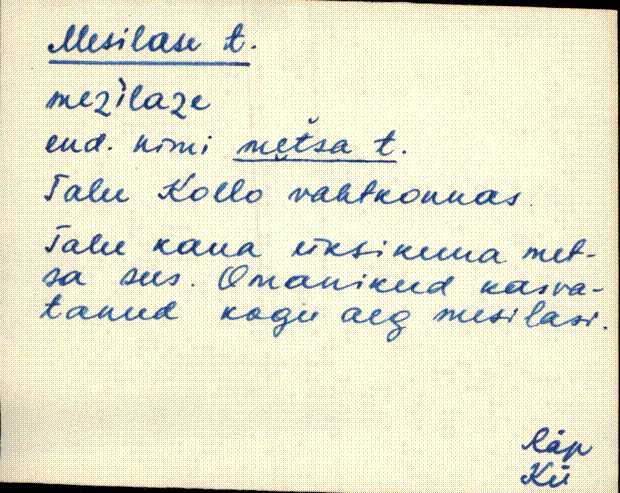 Mesilase t.
mezìlaze
end. nimi metsa t.
Talu Kollo vahtkonnas.
Talu kaua üksikuna met-
sa sees. Omanikud kasva-
tanud kogu aeg mesilasi.
Räp
Kü